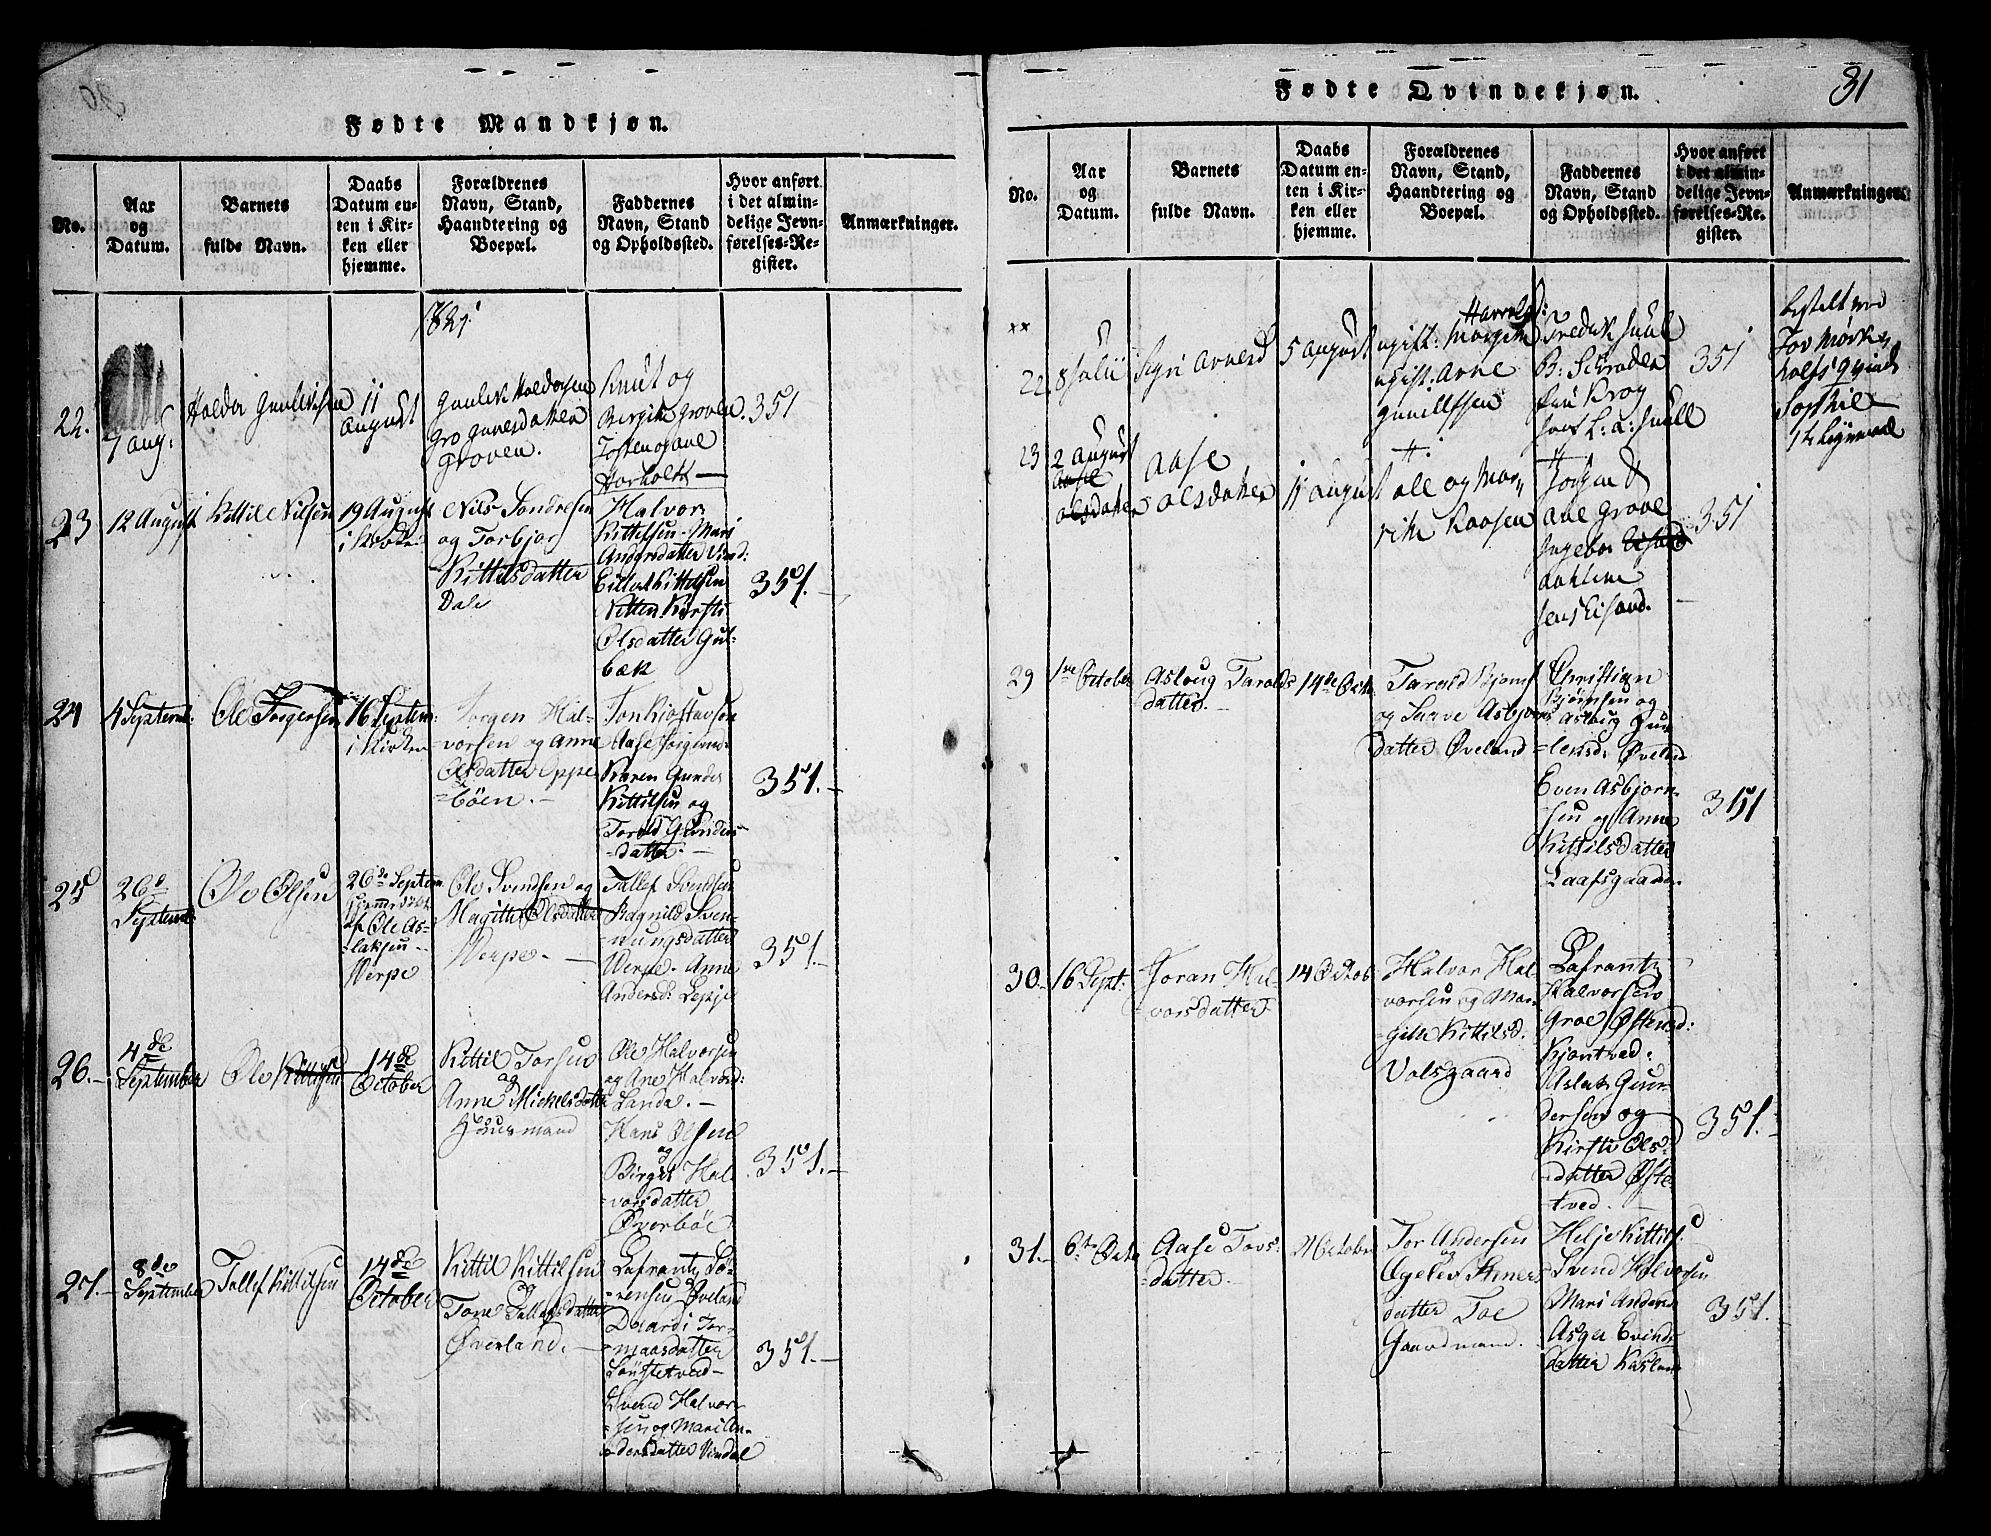 Fødte Mandkjøn.
No.
Aar
og
Datum.
Barnets
fulde Navn.
Daabs
Datum en-
ten i Kir-
ken eller
hjemme.
Forældrenes
Navn, Stand,
Haandtering og
Boepæl.
Faddernes
Navn, Stand
og Opholdssted.
Hvor anført
i det almin-
delige Jevn-
førelses-Re-
gister.
Anmærkninger.
1821
22.
7 Aug:
Halder Gunleiksen
11
August
Gunleik Haldorsen
Gro Gunersdatter
Groven.
Knut og
Bergit Groven.
Josten og Aae
Horholt
351
23
12 August
Kittil Nilsen
19 August
i Kirken
Nils Sondresen
og Torbjor
Kittilsdatter
Dale
Halvor
Kittelsen. Mari
Andersdatter Vind:
Kittelsen
Kirsti
Olsdatter Gul-
bæk
351.
24
4 Septemb:
Ole Jørgensen
16 Septem:
i Kirken
Jørgen Hal-
vorsen og Anne
Olsdatter Oppe-
bøen.
Jon Kiøstavsen
Aase
Karen Gunder
Kittilsen og
Torold Gunders-
datter.
351.
25
26de
Septemb
Ole Olsen
26de Septem
af Ole As-
laksen
Verpe
Ole Svendsen og
Magitte Olsdatter
Verpe.
Tallef Svendsen
Ragnild Sven-
nungsdatter
Verpe. Anne
Andersd: Leppe
351.
26.
4de
September
Ole Kittilsen
14de
October
Kittil Torsen
og
Anne Mickelsdatter
Huusmand
Ole Halvorsen
og Ane Halvord:
Landa.
Hans Olsen
og
Birgit Hal-
vorsdatter
Øverbøe
351.
27.
8de
September
Tallef Kittilsen
14de
October
Kittil Kittilsen
og
Tone Tallefsdatter
Øverland.
Lafrantz Sø-
rensen Øveland
Daardi Tor-
maasdatter
Lønstetved
Svend Halvor-
sen og Mari An-
dersdatter Vindal
351.
Fødte Qvindekjøn.
31
No.
Aar
og
Datum.
Barnets
fulde Navn.
Daabs
Datum en-
ten i Kir-
ken eller
hjemme.
Forældrenes
Navn, Stand,
Haandtering og
Boepæl.
Faddernes
Navn, Stand
og Opholdssted.
Hvor anført
i det almin-
delige Jevn-
førelses-Re-
gister.
Anmærkninger.
xx
22
8 Julii
Sigri Arnesd
5 August
Harrolds:
ugift: Margith
ugift. Arne
Gunullfsen
Fredrik Juul
B: Schrader
fru Krog
L: a: Juull
351
bestelt ved
Tov Mork
Sophie
23
2 August
Aase
Olsdatter
Aase
Olsdatter
11 August
Ole og Mar
rithe Raasen
Jørgen &
Ane Grove
Ingebor Eisand
Jens Eisand.
351
29
1ste October
Aslaug Tarolds
datter.
14de Octo
Tarald Bjørns
og Sarve Asbjørns
datter Øveland
Christian
Bjørnsen og
Aslaug Gun
lerisd: Øveland
Even Asbjørn-
sen og Anne
Kittilsdatter
Laafsgaarden
351
30.
16 Sept:
Joran Hal-
vorsdatter
14 Octob
Halvor Hal
vorsen og Mar-
gith Kittilsd.
Valsgaard
Lafrantz
Halvorsen
Groe Østensd:
Kjøntved:
Aslak Gun-
dersen og
Kirsti Ols-
datter Øste-
tved.
351.
31.
6te Octo
Aase Tovs-
datter.
21 October
Tor Andersen
og
Agelev Steners
datter Toe
Gaardmand.
Helje Kittilsd
Svend Halvorsen
Mari Anders
Asger Evinds
datter Kasland
351.